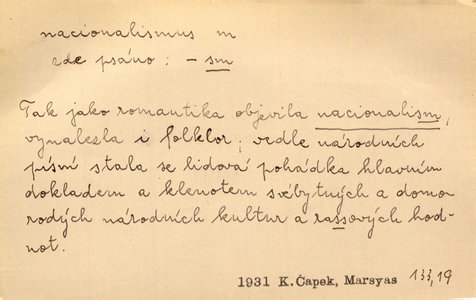 nacionalismus m
zde psáno: -sm
Tak jako romantika objevila nacionalism,
vynalezla i folklor; vedle národních
písní stala se lidová pohádka hlavním
dokladem a klenotem svébytných a domo-
rodých národních kultur a rassových hod-
not.
1931 K.Čapek, Marsyas 133,19